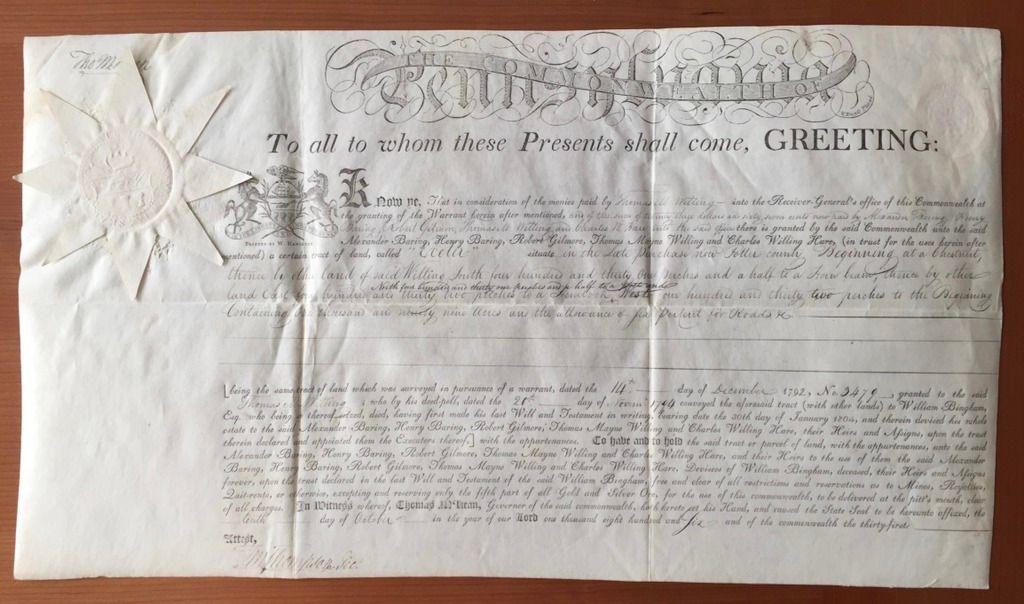 Tho M
THE COMMONWEALTH OF
Pennsylvania
To all to whom these Presents shall come, GREETING:
Know ye, That in consideration of the monies paid by Thomas M Willing into the Receiver-General's office of this Commonwealth at
the granting of the Warrant herein after mentioned, and of the sum of dollars and sixty seven cents now paid by Alexander Baring Henry
Baring, Robert Gilmore, Thomas M Willing and Charles W Hare there is granted by the said Commonwealth unto the said
Alexander Baring, Henry Baring, Robert Gilmore, Thomas Mayne Willing and Charles Willing Hare, (in trust for the uses herein after
PRINTED BY W. HAMILTON
mentioned) a certain tract of land, called situate in the late Purchase now Potter county Beginning at a Chestnut,
thence by other land of said Willing South four hundred and thirty one perches and a half to a Iron beam, thence by other
North four hundred and thirty one perches and a half to a
land East four hundred and thirty two perches to a West four hundred and thirty two perches to the Beginning
Containing One thousand and ninety nine Acres and the allowance of six Percent for Roads &c
[being the same tract of land which was surveyed in pursuance of a warrant, dated the 14th day of December 1792, No. 3479 granted to the said
Thomas M Willing, who by his deed-poll, dated the day of Novem 1794 conveyed the aforesaid tract (with other lands) to William Bingham,
Esq. who being thereof seized, died, having first made his last Will and Testament in writing, bearing date the 30th day of January 1804, and therein devised his whole
estate to the said Alexander Baring, Henry Baring, Robert Gilmore, Thomas Mayne Willing and Charles Willing Hare, their Heirs and Assigns, upon the trust
therein declared and appointed them the Executors thereof,] with the appurtenances. To have and to hold the said tract or parcel of land, with the appurtenances, unto the said
Alexander Baring, Henry Baring, Robert Gilmore, Thomas Mayne Willing and Charles Willing Hare, and their Heirs to the use of them the said Alexander
Baring, Henry Baring, Robert Gilmore, Thomas Mayne Willing and Charles Willing Hare, Devisees of William Bingham, deceased, their Heirs and Assigns
forever, upon the trust declared in the last Will and Testament of the said William Bingham, free and clear of all restrictions and reservations as to Mines, Royalties,
Quit-rents, or otherwise, excepting and reserving only the fifth part of all Gold and Silver Ore, for the use of this commonwealth, to be delivered at the pitt's mouth, clear
of all charges. In Witness whereof, Thomas M'Kean, Governor of the said commonwealth, hath hereto set his Hand, and caused the State Seal to be hereunto affixed, the
tenth day of October in the year of our Lord one thousand eight hundred and six and of the commonwealth the thirty-first.
Attest,
Thompson Sec.